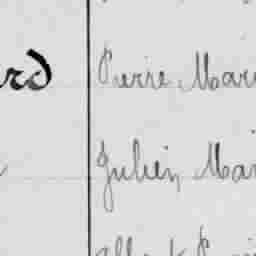 rd Pierre, Mari
Julien, Mar